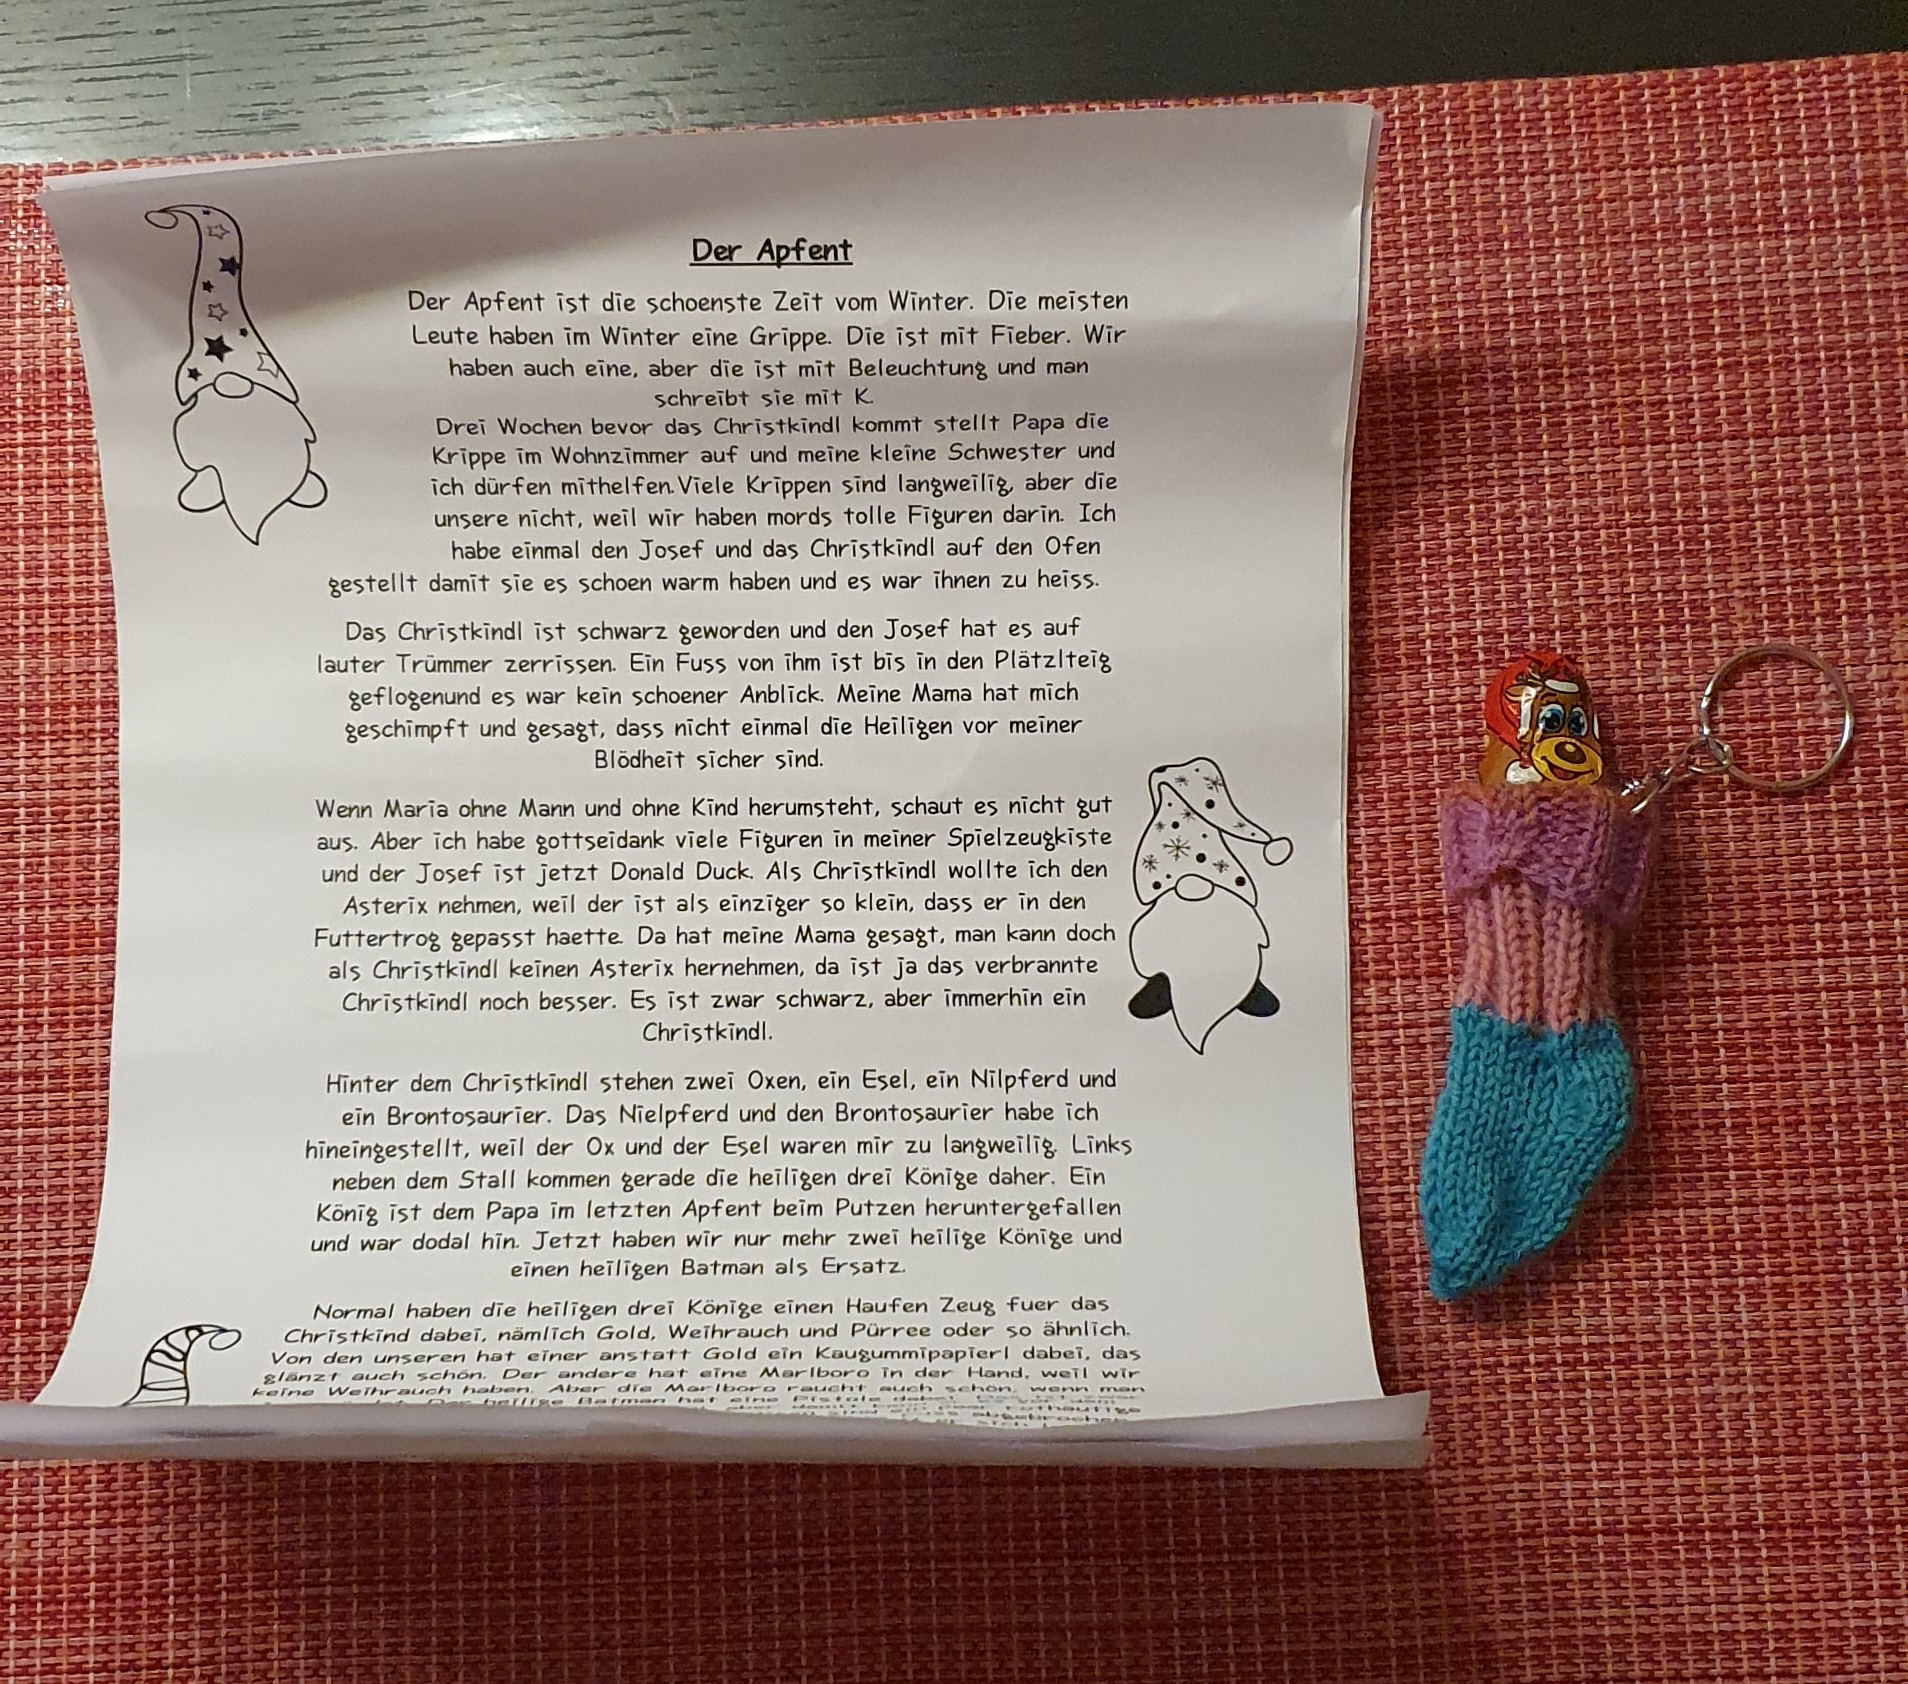 Der Apfent
Der Apfent ist die schoenste Zeit vom Winter. Die meisten
Leute haben im Winter eine Grippe. Die ist mit Fieber. Wir
haben auch eine, aber die ist mit Beleuchtung und man
schreibt sie mit K.
Drei Wochen bevor das Christkindl kommt stellt Papa die
Krippe im Wohnzimmer auf und meine kleine Schwester und
ich dürfen mithelfen.Viele Krippen sind langweilig, aber die
unsere nicht, weil wir haben mords tolle Figuren darin. Ich
habe einmal den Josef und das Christkindl auf den Ofen
gestellt damit sie es schoen warm haben und es war ihnen zu heiss.
Das Christkindl ist schwarz geworden und den Josef hat es auf
lauter Trümmer zerrissen. Ein Fuss von ihm ist bis in den Plätzlteig
geflogenund es war kein schoener Anblick. Meine Mama hat mich
geschimpft und gesagt, dass nicht einmal die Heiligen vor meiner
Blödheit sicher sind.
Wenn Maria ohne Mann und ohne Kind herumsteht, schaut es nicht gut
aus. Aber ich habe gottseidank viele Figuren in meiner Spielzeugkiste
und der Josef ist jetzt Donald Duck. Als Christkindl wollte ich den
Asterix nehmen, weil der ist als einziger so klein, dass er in den
Futtertrog gepasst haette. Da hat meine Mama gesagt, man kann doch
als Christkindl keinen Asterix hernehmen, da ist ja das verbrannte
Christkindl noch besser. Es ist zwar schwarz, aber immerhin ein
Christkindl.
Hinter dem Christkindl stehen zwei Oxen, ein Esel, ein Nilpferd und
ein Brontosaurier. Das Nielpferd und den Brontosaurier habe ich
hineingestellt, weil der Ox und der Esel waren mir zu langweilig. Links
neben dem Stall kommen gerade die heiligen drei Könige daher. Ein
König ist dem Papa im letzten Apfent beim Putzen heruntergefallen
und war dodal hin. Jetzt haben wir nur mehr zwei heilige Könige und
einen heiligen Batman als Ersatz.
Normal haben die heiligen drei Könige einen Haufen Zeug fuer das
Christkind dabei, nämlich Gold, Weihrauch und Pürree oder so ähnlich.
Von den unseren hat einer anstatt Gold ein Kaugummipapierl dabei, das
glänzt auch schön. Der andere hat eine Marlboro in der Hand, weil wir
keine Weihrauch haben. Aber die Marlboro raucht auch schön, wenn man
Der heilige Batman hat eine Pistole dabei.